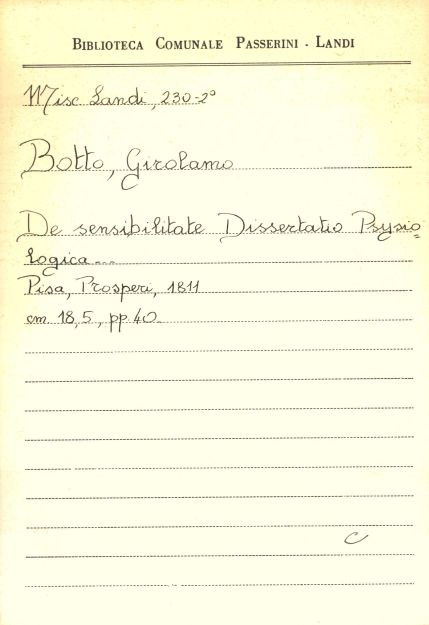 BIBLIOTECA COMUNALE PASSERINI - LANDI
Misc. Landi, 230-2°
Botto, Girolamo
De sensibilitate Dissertatio Psysio=
logica....
Pisa, Prosperi, 1811
cm. 18,5, pp. 40.
C